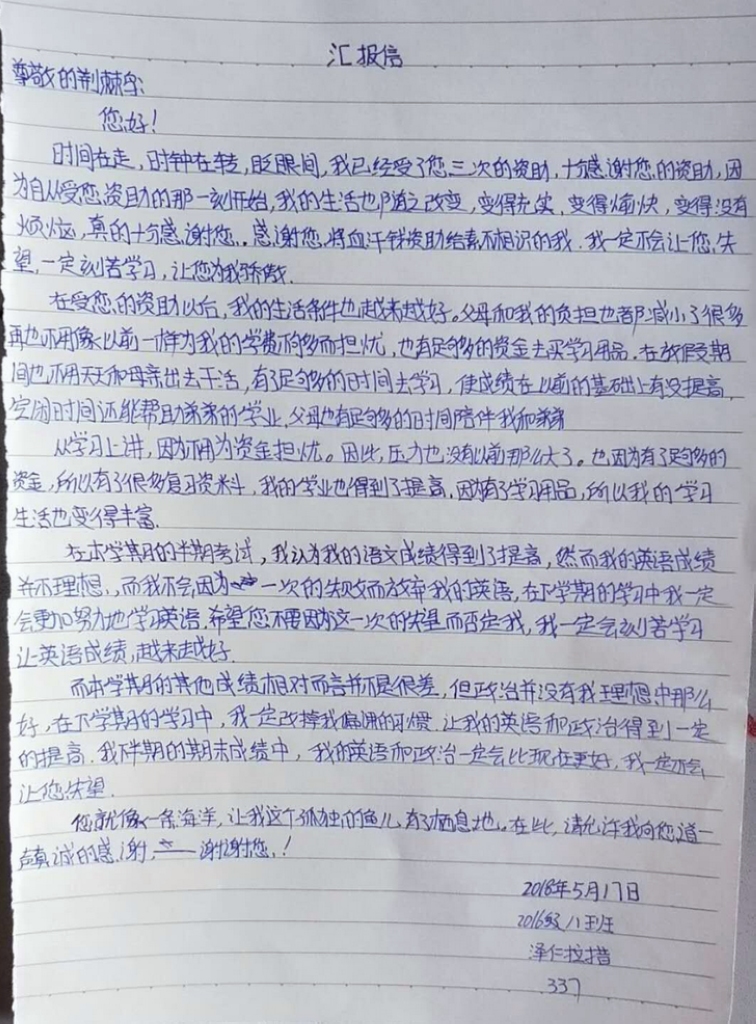 汇报信
尊敬的荆棘鸟:
您好!
时间在走,时钟在转,眨眼间,我已经受了您三次的资助,十分感谢您的资助,因
为自从受您资助的那一刻开始,我的生活也随之改变,变得充实,变得愉快,变得没有
烦恼,真的十分感谢您。感谢您将血汗钱资助给素不相识的我。我一定不会让您失
望,一定刻苦学习,让您为我骄傲.
在受您的资助以后,我的生活条件也越来越好。父母和我的负担也都减小了很多
再也不用像以前一样为我的学费不够多而担忧,也有足够多的资金去买学习用品.在放假期
间也不用天天和母亲出去干活,有了足够多的时间去学习,使成绩在以前的基础上有没提高,
空闲时间还能帮助弟弟的学业,父母也有足够多的时间陪伴我和弟弟
从学习上讲,因为不用为资金担忧。因此,压力也没有以前那么大了。也因为有了足够多的
资金,所以有了很多复习资料,我的学业也得到了提高,因为有了学习用品,所以我的学习
生活也变得丰富.
在本学期的半期考试,我认为我的语文成绩得到了提高,然而我的英语成绩
并不理想,而我不会因为一次的失败而放弃我的英语,在下学期的学习中我一定
会更加努力地学习英语.希望您不要因为这一次的失望而否定我,我一定会刻苦学习
让英语成绩,越来越好.
而本学期的其他成绩相对而言并不是很差,但政治并没有我理想中那么
好,在下学期的学习中,我一定改掉我偏科的习惯,让我的英语和政治得到一定
的提高.我下半期的期末成绩中,我的英语和政治一定会比现在更好,我一定不会
让您失望.
您就像一条海洋,让我这个孤独的鱼儿有了栖息地。在此,请允许我向您道一
声真诚的感谢,谢谢您!
2018年5月17日
2016级八班
泽仁拉措
337